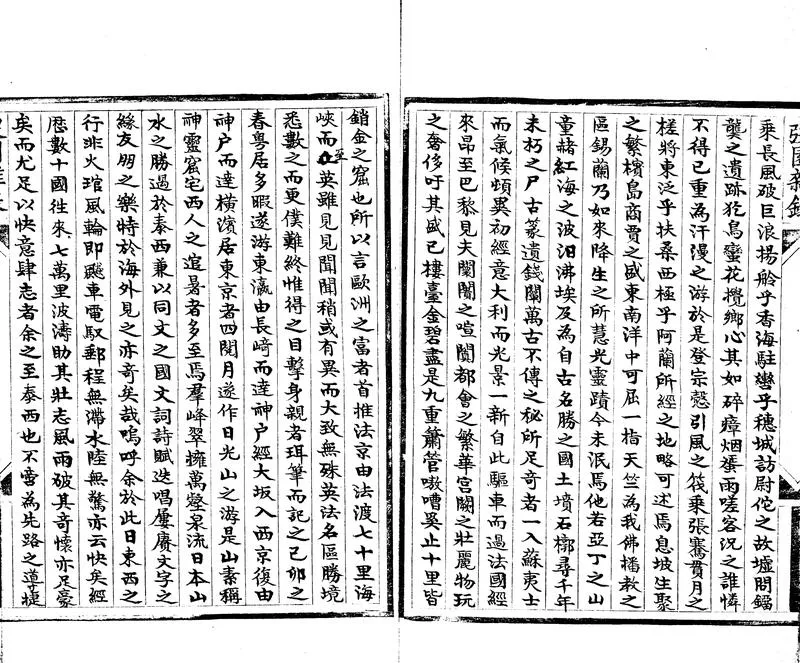 乘長風破巨浪揚舲乎香海駐蹕乎穗城訪尉佗之故墟問鐳
龔之遺跡犵鳥蠻花攪鄉心其如碎瘴烟蜑雨嗟客況之誰憐
不得已重為汗漫之游於是登宗愨引風之筏乘張騫貫月之
槎將東泛乎扶桑西極乎阿蘭所經之地略可述焉息坡生聚
之繁檳島商賈之盛東南洋中可屈一指天竺為我佛播教之
區錫蘭乃如來降生之所慧光靈蹟今未泯焉他若亞丁之山
童赭紅海之波汨沸埃及為自古名勝之國土墳石槨尋千年
未朽之尸古篆遺錢闡萬古不傳之秘所足奇者一入蘇夷士
而氣候頓異初經意大利而光景一新自此驅車而過法國經
來昂至巴黎見夫闤闠之喧闐都會之繁華宮闕之壯麗物玩
之奢侈吁其盛已樓臺金碧盡是九重簫管嗷嘈奚止十里皆
銷金之窟也所以言歐洲之富者首推法京由法渡七十里海
峽而至英雖見見聞聞稍或有異而大致無殊英法名區勝境
悉數之而更僕難終惟得之目擊身親者珥筆而記之己卯之
春粵居多暇遂游東瀛由長崎而達神户經大坂入西京復由
神户而達橫濱居東京者四閱月遂作日光山之游是山素稱
神靈窟宅西人之逭暑者多至焉羣峰翠擁萬壑泉流日本山
水之勝過於泰西兼以同文之國文詞詩賦迭唱屢賡文字之
緣友朋之樂特於海外見之亦奇矣哉嗚呼余於此日東西之
行非火琯風輪即飈車電馭郵程無滯水陸無驚亦云快矣經
歷數十國往來七萬里波濤助其壯志風雨破其奇懷亦足豪
矣而尤足以快意肆志者余之至泰西也不啻為先路之導捷